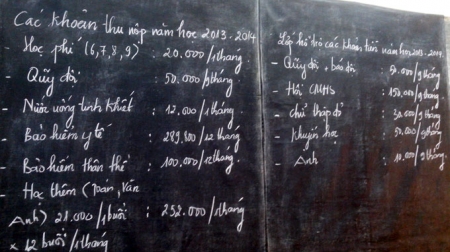 Các khoản thu nộp năm học 2013-2014
- Học phí (6,7,8,9) : 20.000/1tháng
- Quỹ đội : 50.000/9tháng
- Nước uống tinh khiết : 12.000/1tháng
- Bảo hiểm y tế : 289.800/12 tháng
- Bảo hiểm thân thể : 100.000/12tháng
- Học thêm (Toán, Văn
Anh) 21.000/1buổi : 252.000/1tháng
x 12 buổi/1tháng
các khoản tiền năm học 2013-2014
- Quỹ đội, báo đội : 50.000/9tháng
- Hội CMHS : 150.000/9tháng
- chữ thập đỏ : 30.000/9tháng
- Khuyến học : 50.000/9tháng
- Ảnh : 10.000/9tháng